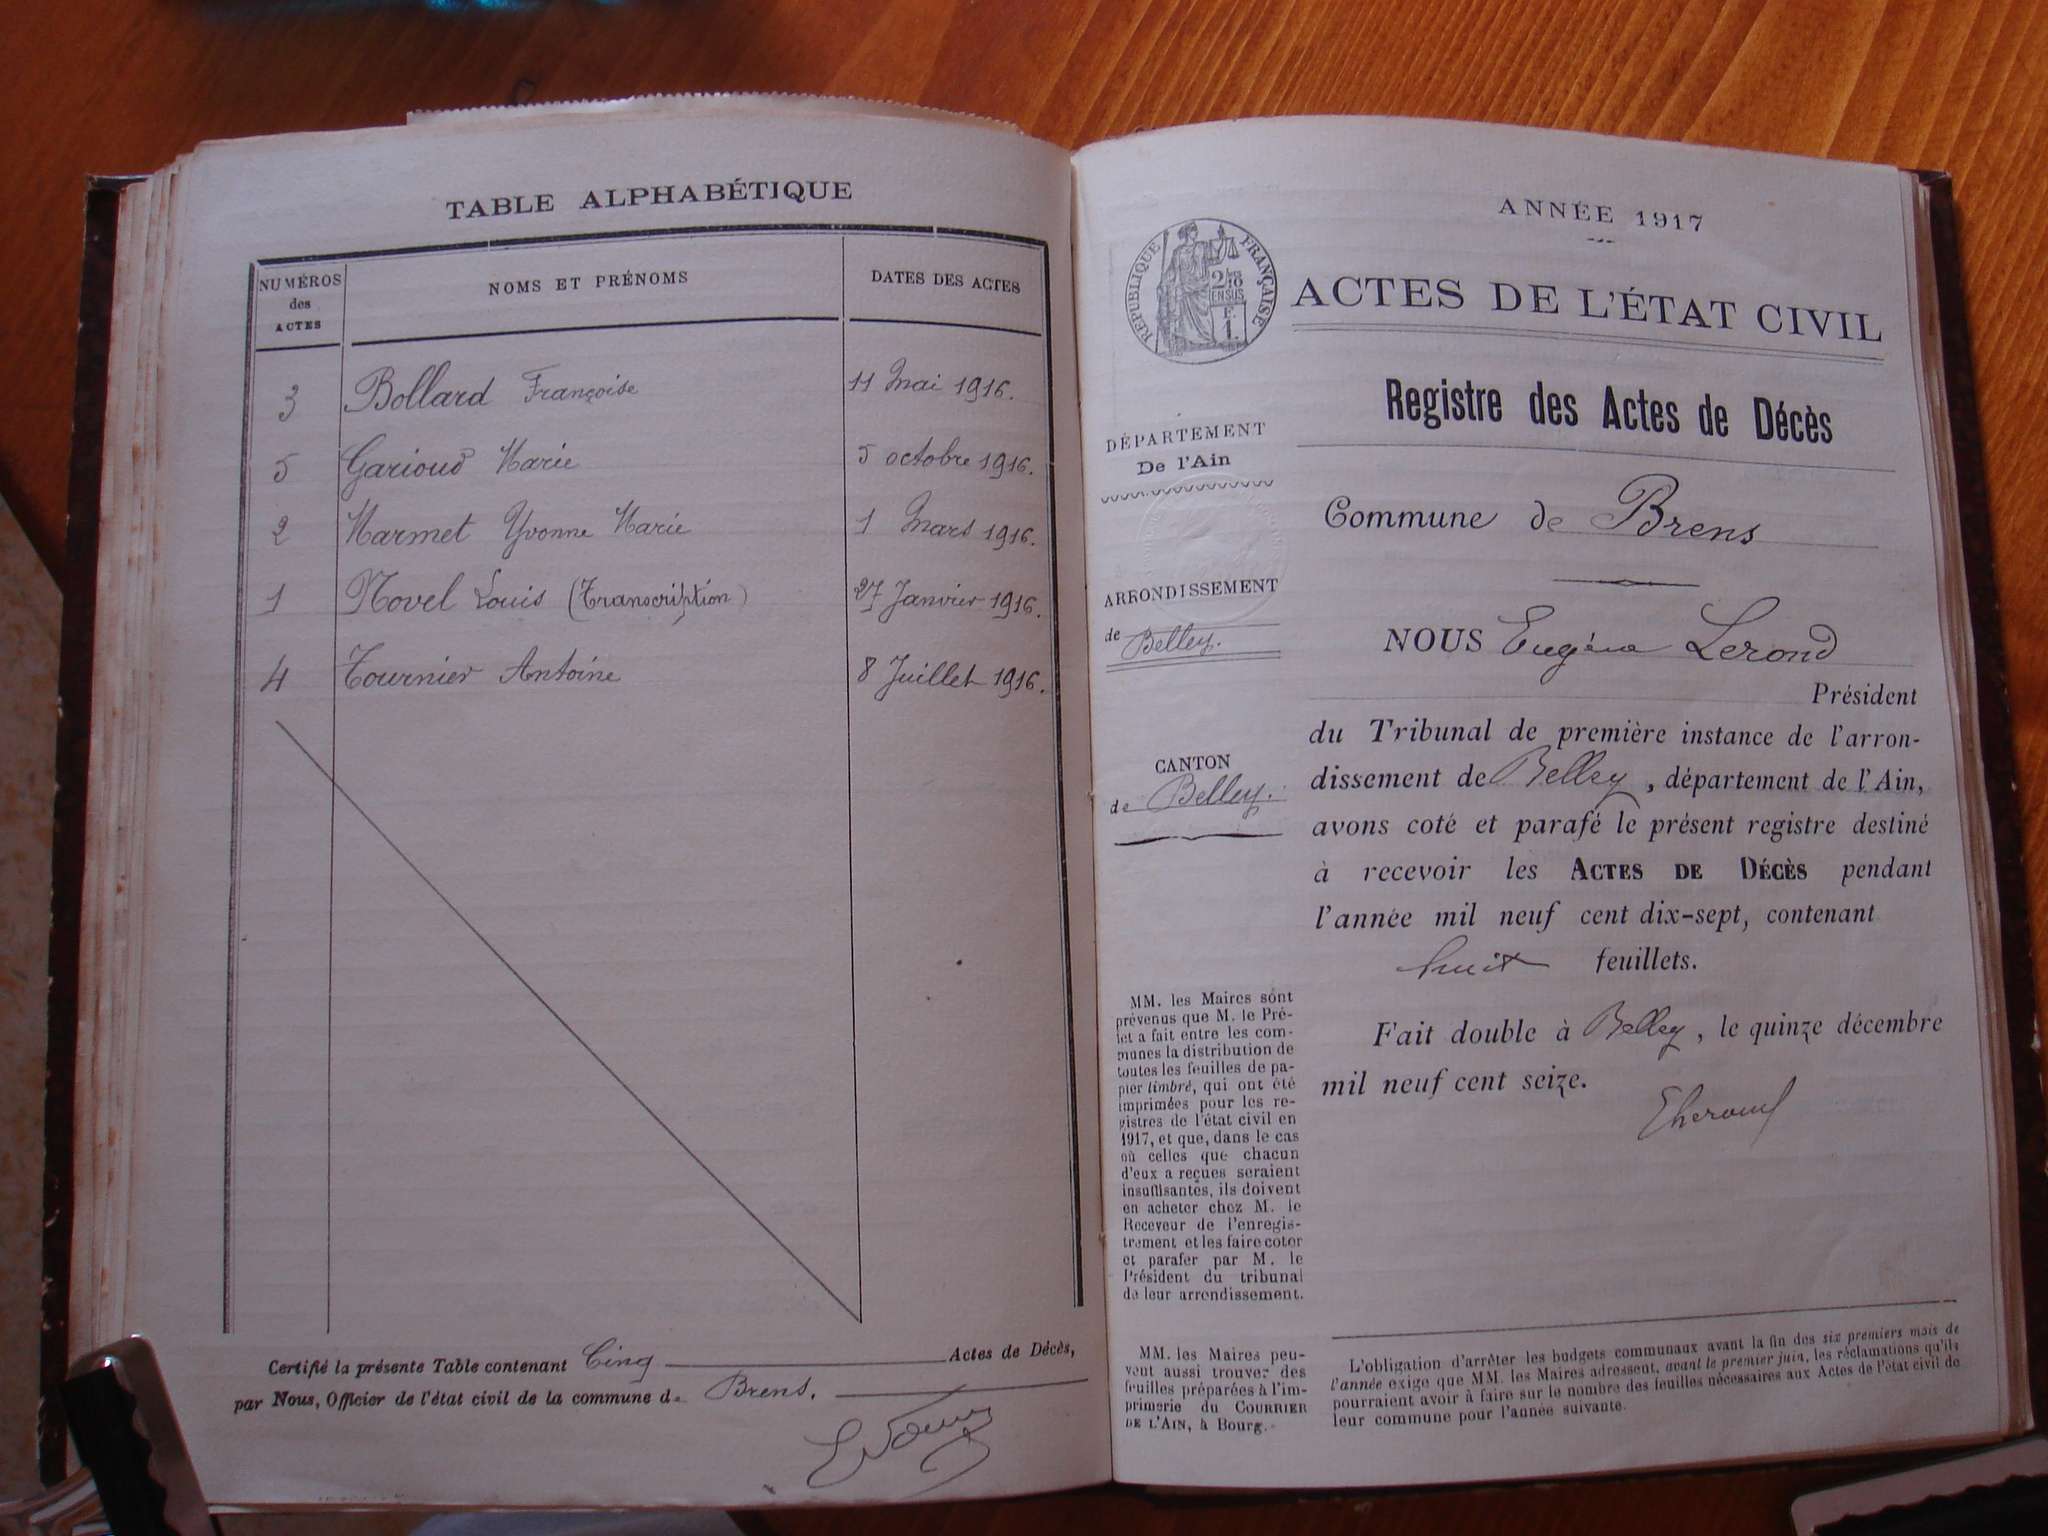 TABLE ALPHABÉTIQUE
NUMÉROS des ACTES
NOMS ET PRÉNOMS
DATES DES ACTES
3 Bollard Françoise 11 Mai 1916.
5 Garioud Marie 5 octobre 1916.
2 Marmet Yvonne Marie 1 Mars 1916.
1 Novel Louis (Transcription) 27 Janvier 1916.
4 Tournier Antoine 8 Juillet 1916.
Certifié la présente Table contenant Cinq Actes de Décès,
par Nous, Officier de l'état civil de la commune d. Brens.
ANNÉE 1917
RÉPUBLIQUE FRANÇAISE
2/10
EN SUS
F.
1.
ACTES DE L'ÉTAT CIVIL
Registre des Actes de Décès
DÉPARTEMENT
De l'Ain
ARRONDISSEMENT
de Belley.
CANTON
de Belley.
MM. les Maires sont
prévenus que M. le Pré-
fet a fait entre les com-
munes la distribution de
toutes les feuilles de pa-
pier timbré, qui ont été
imprimées pour les re-
gistres de l'état civil en
1917, et que, dans le cas
où celles que chacun
d'eux a reçues seraient
insuffisantes, ils doivent
en acheter chez M. le
Receveur de l'enregis-
trement et les faire coter
et parafer par M. le
Président du tribunal
de leur arrondissement.
MM. les Maires peu-
vent aussi trouver des
feuilles préparées à l'im-
primerie du COURRIER
DE L'AIN, à Bourg.
Commune de Brens
NOUS Eugène Lerond
Président
du Tribunal de première instance de l'arron-
dissement de Belley, département de l'Ain,
avons coté et parafé le présent registre destiné
à recevoir les ACTES DE DÉCÈS pendant
l'année mil neuf cent dix-sept, contenant
huit feuillets.
Fait double à Belley, le quinze décembre
mil neuf cent seize.
L'obligation d'arrêter les budgets communaux avant la fin des six premiers mois de
l'année exige que MM. les Maires adressent, avant le premier juin, les réclamations qu'ils
pourraient avoir à faire sur le nombre des feuilles nécessaires aux Actes de l'état civil de
leur commune pour l'année suivante.